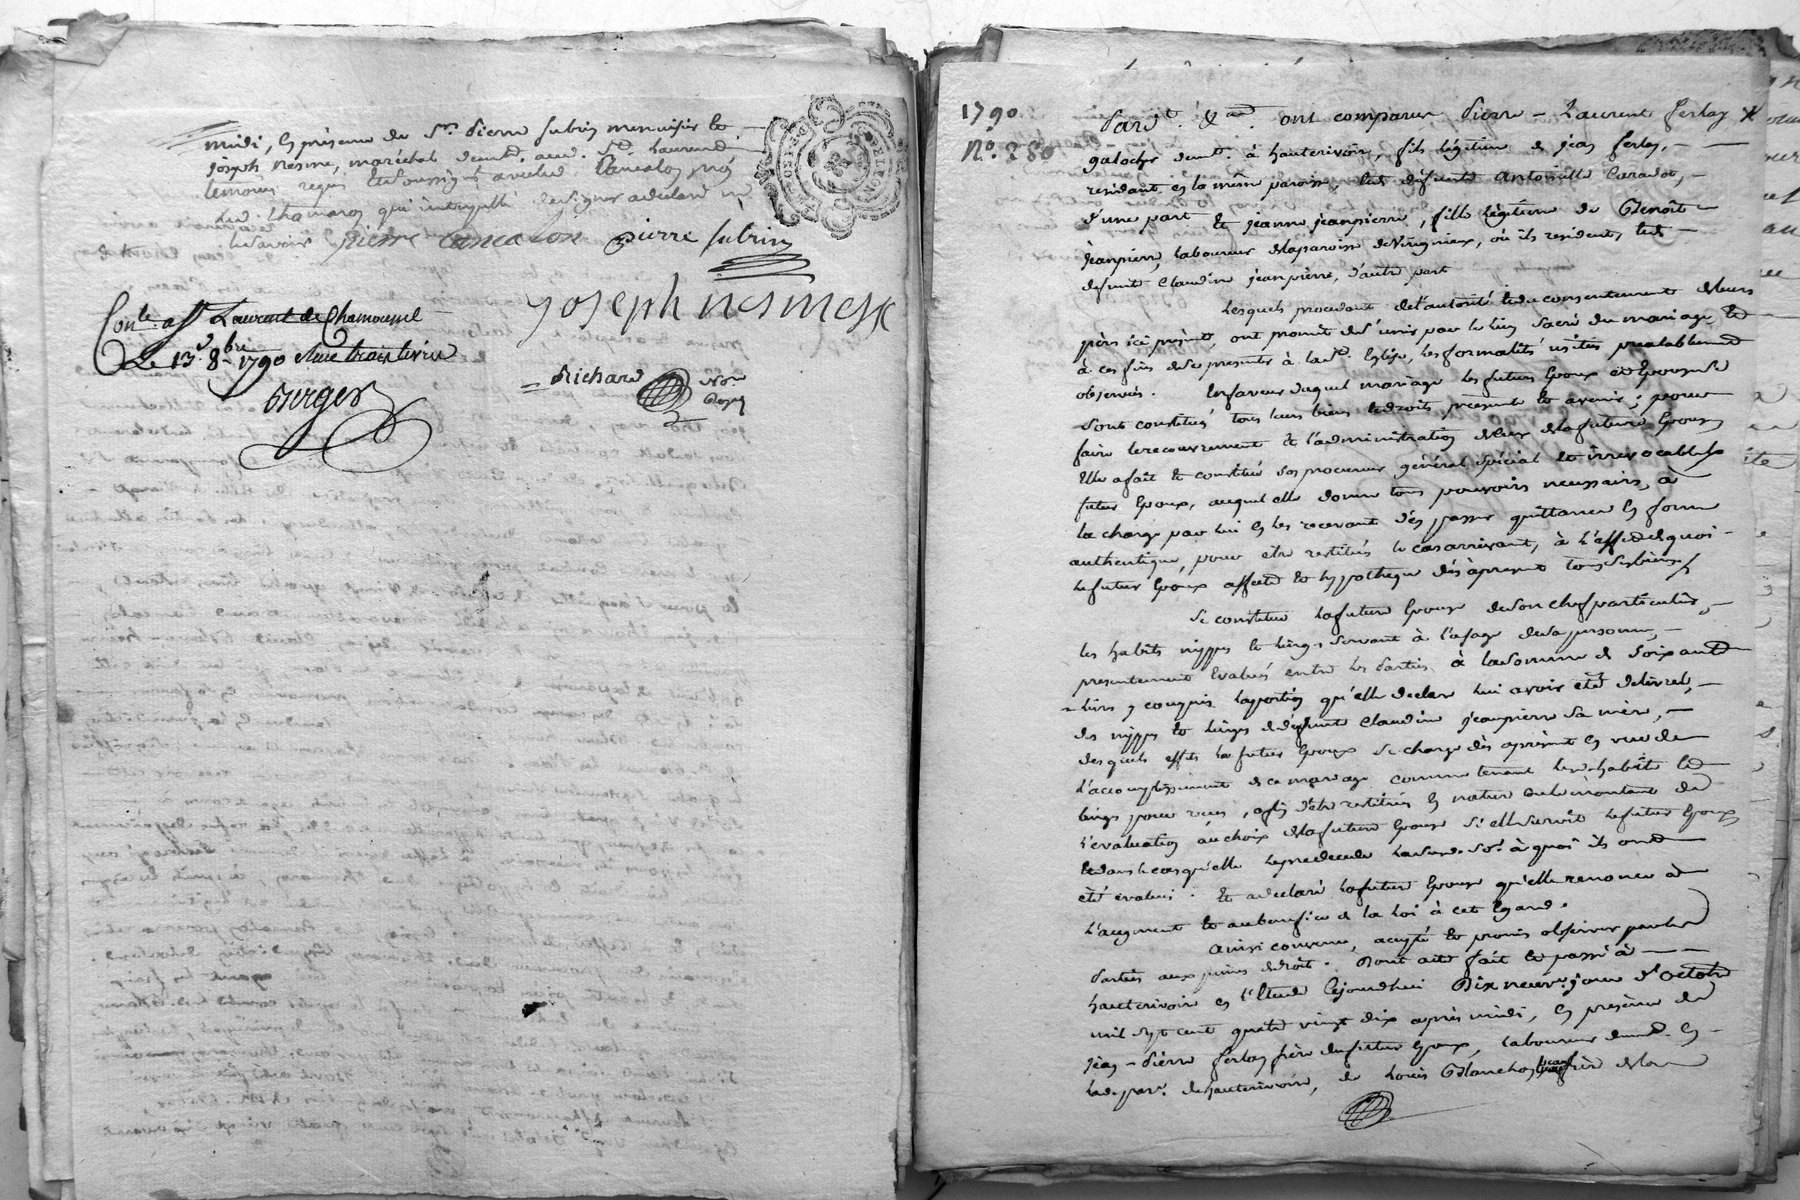 midi, en présence de Sr. Pierre Subrin menuisier et
joseph nesme, maréchal demt. aud. St. Laurent
témoins requis et soussignés avec led. Cancalon non
led. thomaron qui interpellé de signer a déclaré ne
le savoir pierre cancalon pierre subrin
joseph nesme
Conlé. a St Laurent de Chamousset
Le 13 8bre 1790 Reçu trois livres
Berger
Richard nore
Royal
1790
No. 280
Pardt. &a. ont comparu Pierre-Laurent ferlay
galocher demt. à hauterivoire, fils légitime de jean ferlay,
résidant en la même paroisse, et de défunte Antoinette
d'une part et jeanne jeanpierre, fille légitime de Benoît
jeanpierre, laboureur de la paroisse de Virigneux, où ils résident, et de
défunte Claudine jeanpierre, d'autre part
Lesquels procédant de l'autorité et du consentement de leurs
pères ici présents, ont promis de s'unir par le lien sacré du mariage, et
à ces fins de se présenter à la Ste. Eglise, les formalités usitées préalablement
observées. En faveur duquel mariage les futurs Epoux et Epouse se
sont constitués tous leurs biens et droits présents et avenir; pour
faire le recouvrement et l'administration de ceux de la future Epouse
Elle a fait et constitué son procureur général spécial et irrévocable le
futur Epoux, auquel elle donne tous pouvoirs nécessaires, à
la charge par lui en les recevant d'en passer quittance en forme
authentique, pour être restitués le cas arrivant, à l'effet de quoi
le futur Epoux affecte et hypothèque dès à présent tous ses biens
Se constitue la future Epouse de son chef particulier,
les habits nippes et linges servant à l'usage de sa personne,
présentement évalués entre les Parties à la somme de soixante
livres y compris la portion qu'elle déclare lui avoir été délivrée,
des nippes et linges de défunte Claudine jeanpierre sa mère,
desquels effets le futur Epoux se charge dès à présent en vue de
l'accomplissement de ce mariage comme tenant lesd. habits et
linges pour reçus, afin d'être restitués en nature ou le montant de
l'évaluation au choix de la future Epouse si elle survit le futur Epoux
et dans le cas qu'elle le prédécède la susd. so. à quoi ils ont
été évalués. Et a déclaré la future Epouse qu'elle renonce à
l'augment et au bénéfice de la loi à cet égard.
Ainsi convenu, accepté et promis observer par les
Parties aux peines de droit. Dont acte fait et passé à
hauterivoire en l'Etude Cejourdhui Dix neuve. jour d'octobre
mil sept cent quatre vingt dix après midi, en présence de
jean-Pierre ferlay frère du futur Epoux, laboureur demt. en
lad. par. de hauterivoire, de Louis Blanchon beau frère de la